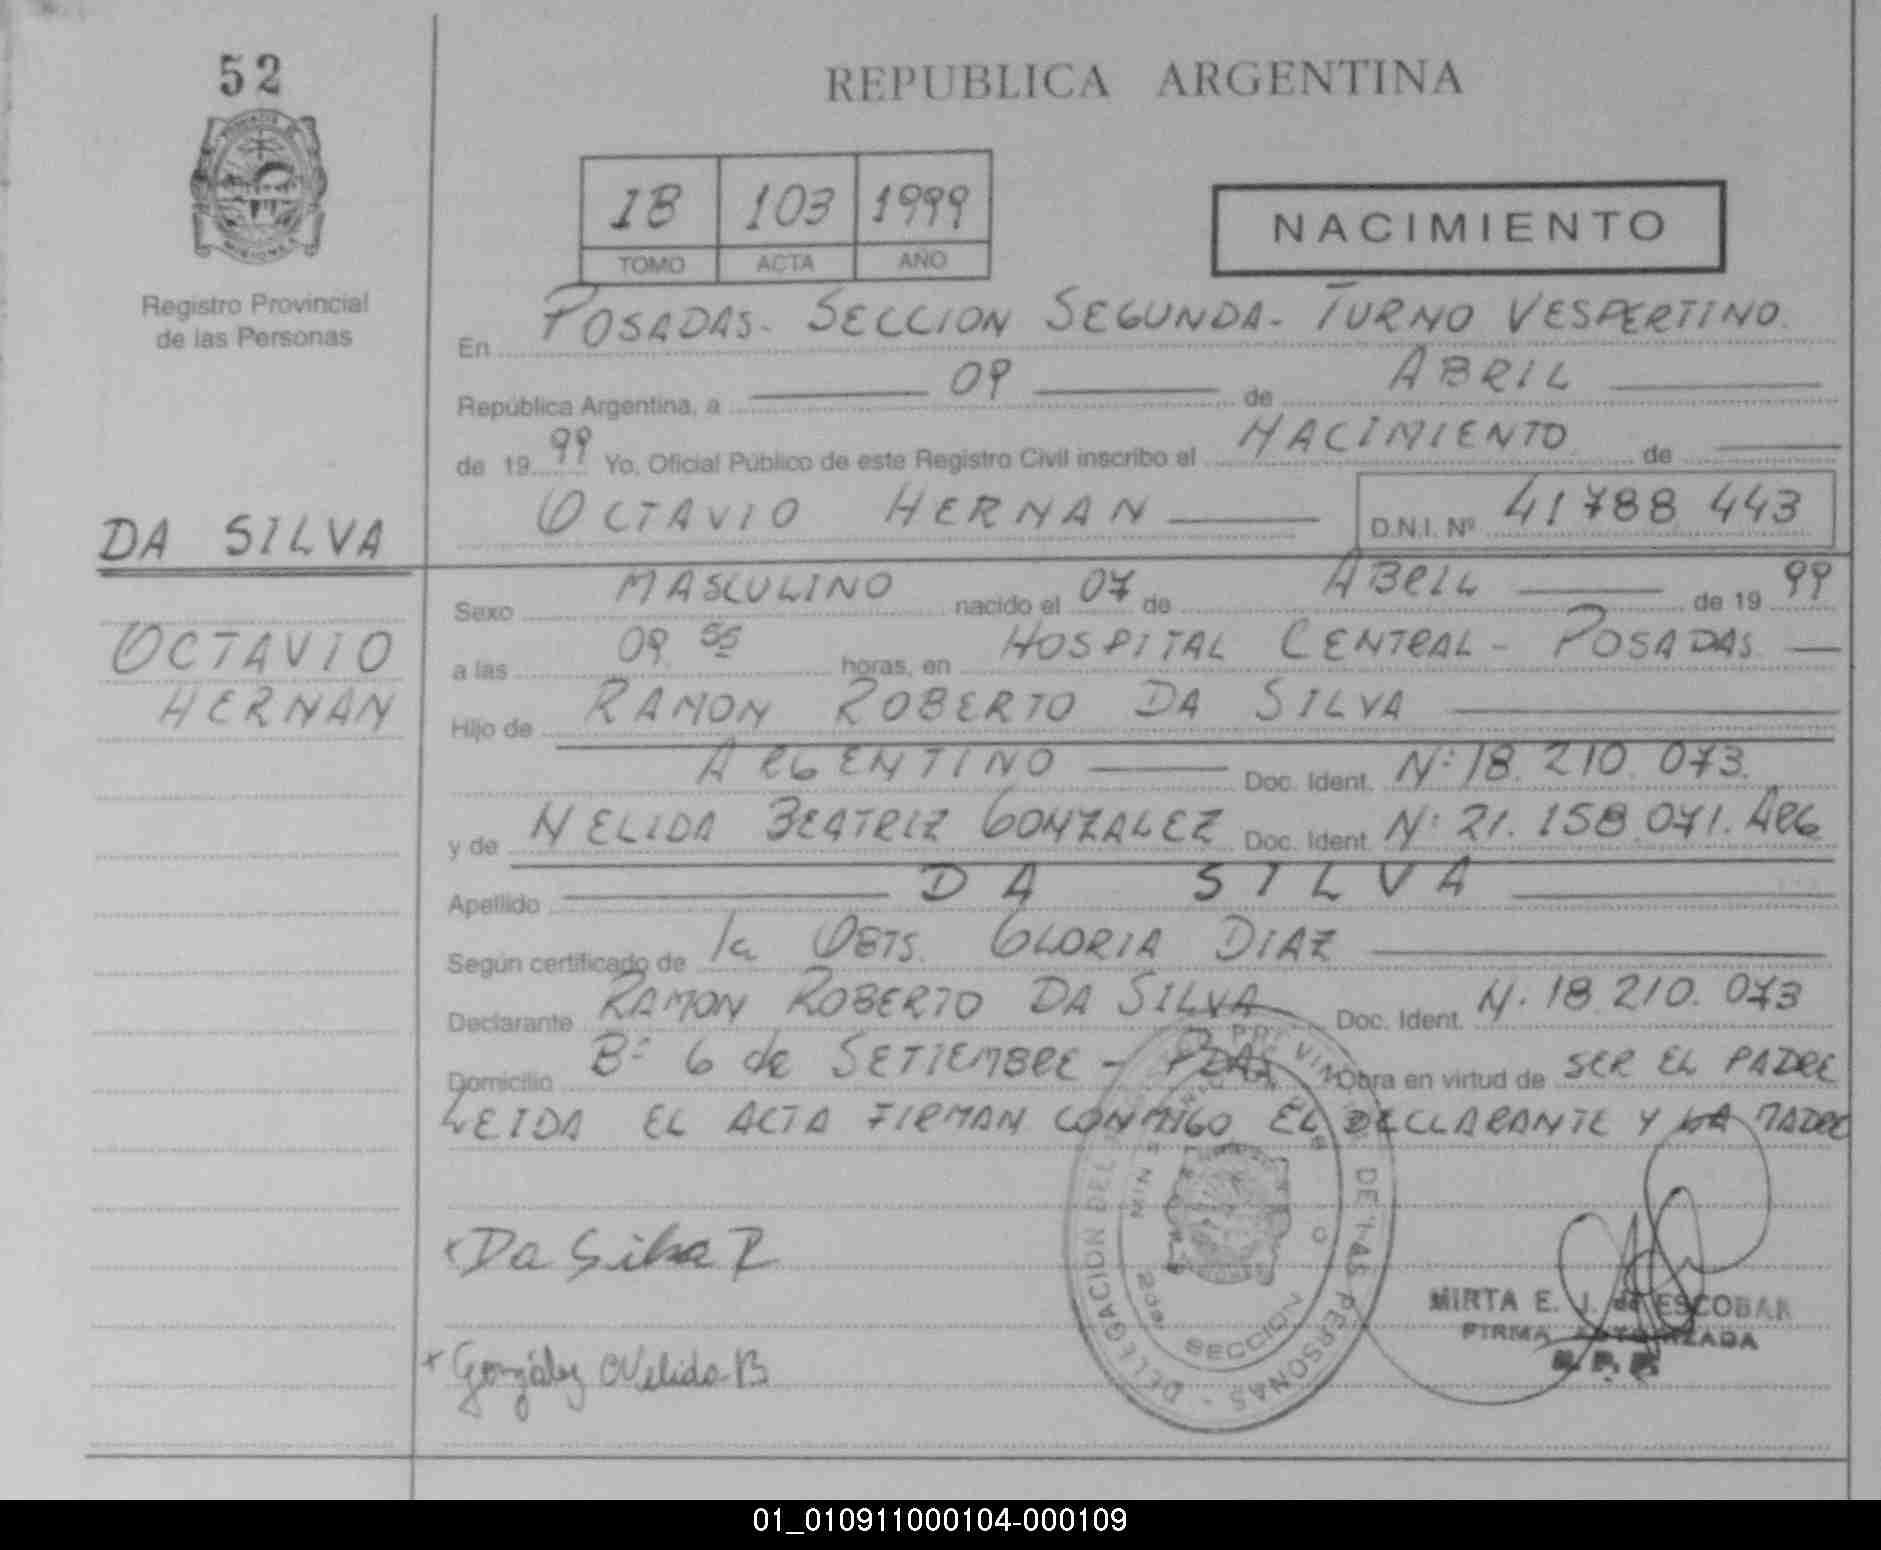 52
REPUBLICA ARGENTINA
1B 103 1999
TOMO ACTA AÑO
NACIMIENTO
Registro Provincial
de las Personas
En POSADAS - SECCION SEGUNDA - TURNO VESPERTINO
República Argentina, a 09 de ABRIL
de 19 99 Yo, Oficial Público de este Registro Civil inscribo el NACIMIENTO de
OCTAVIO HERNAN D.N.I. Nº 41788 443
DA SILVA
OCTAVIO
HERNAN
Sexo MASCULINO nacido el 07 de ABRIL de 19 99
a las 09 55 horas, en HOSPITAL CENTRAL - POSADAS
Hijo de RAMON ROBERTO DA SILVA
ARGENTINO Doc. Ident. Nº 18.210.073.
y de NELIDA BEATRIZ GONZALEZ Doc. Ident. Nº 21.158.071. ARG
Apellido DA SILVA
Según certificado de la OBTS. GLORIA DIAZ
Declarante RAMON ROBERTO DA SILVA Doc. Ident. N. 18.210.073
Domicilio Bº 6 de SETIEMBRE - PDAS Obra en virtud de SER EL PADRE
LEIDA EL ACTA FIRMAN CONMIGO EL DECLARANTE Y LA MADRE
x Da Silva R
x González Nelida B
DELEGACION DEL PROVINCIAL DE LAS PERSONAS
SECCION
MIRTA E. J. de ESCOBAR
FIRMA AUTORIZADA
R. P. P.
01_010911000104-000109